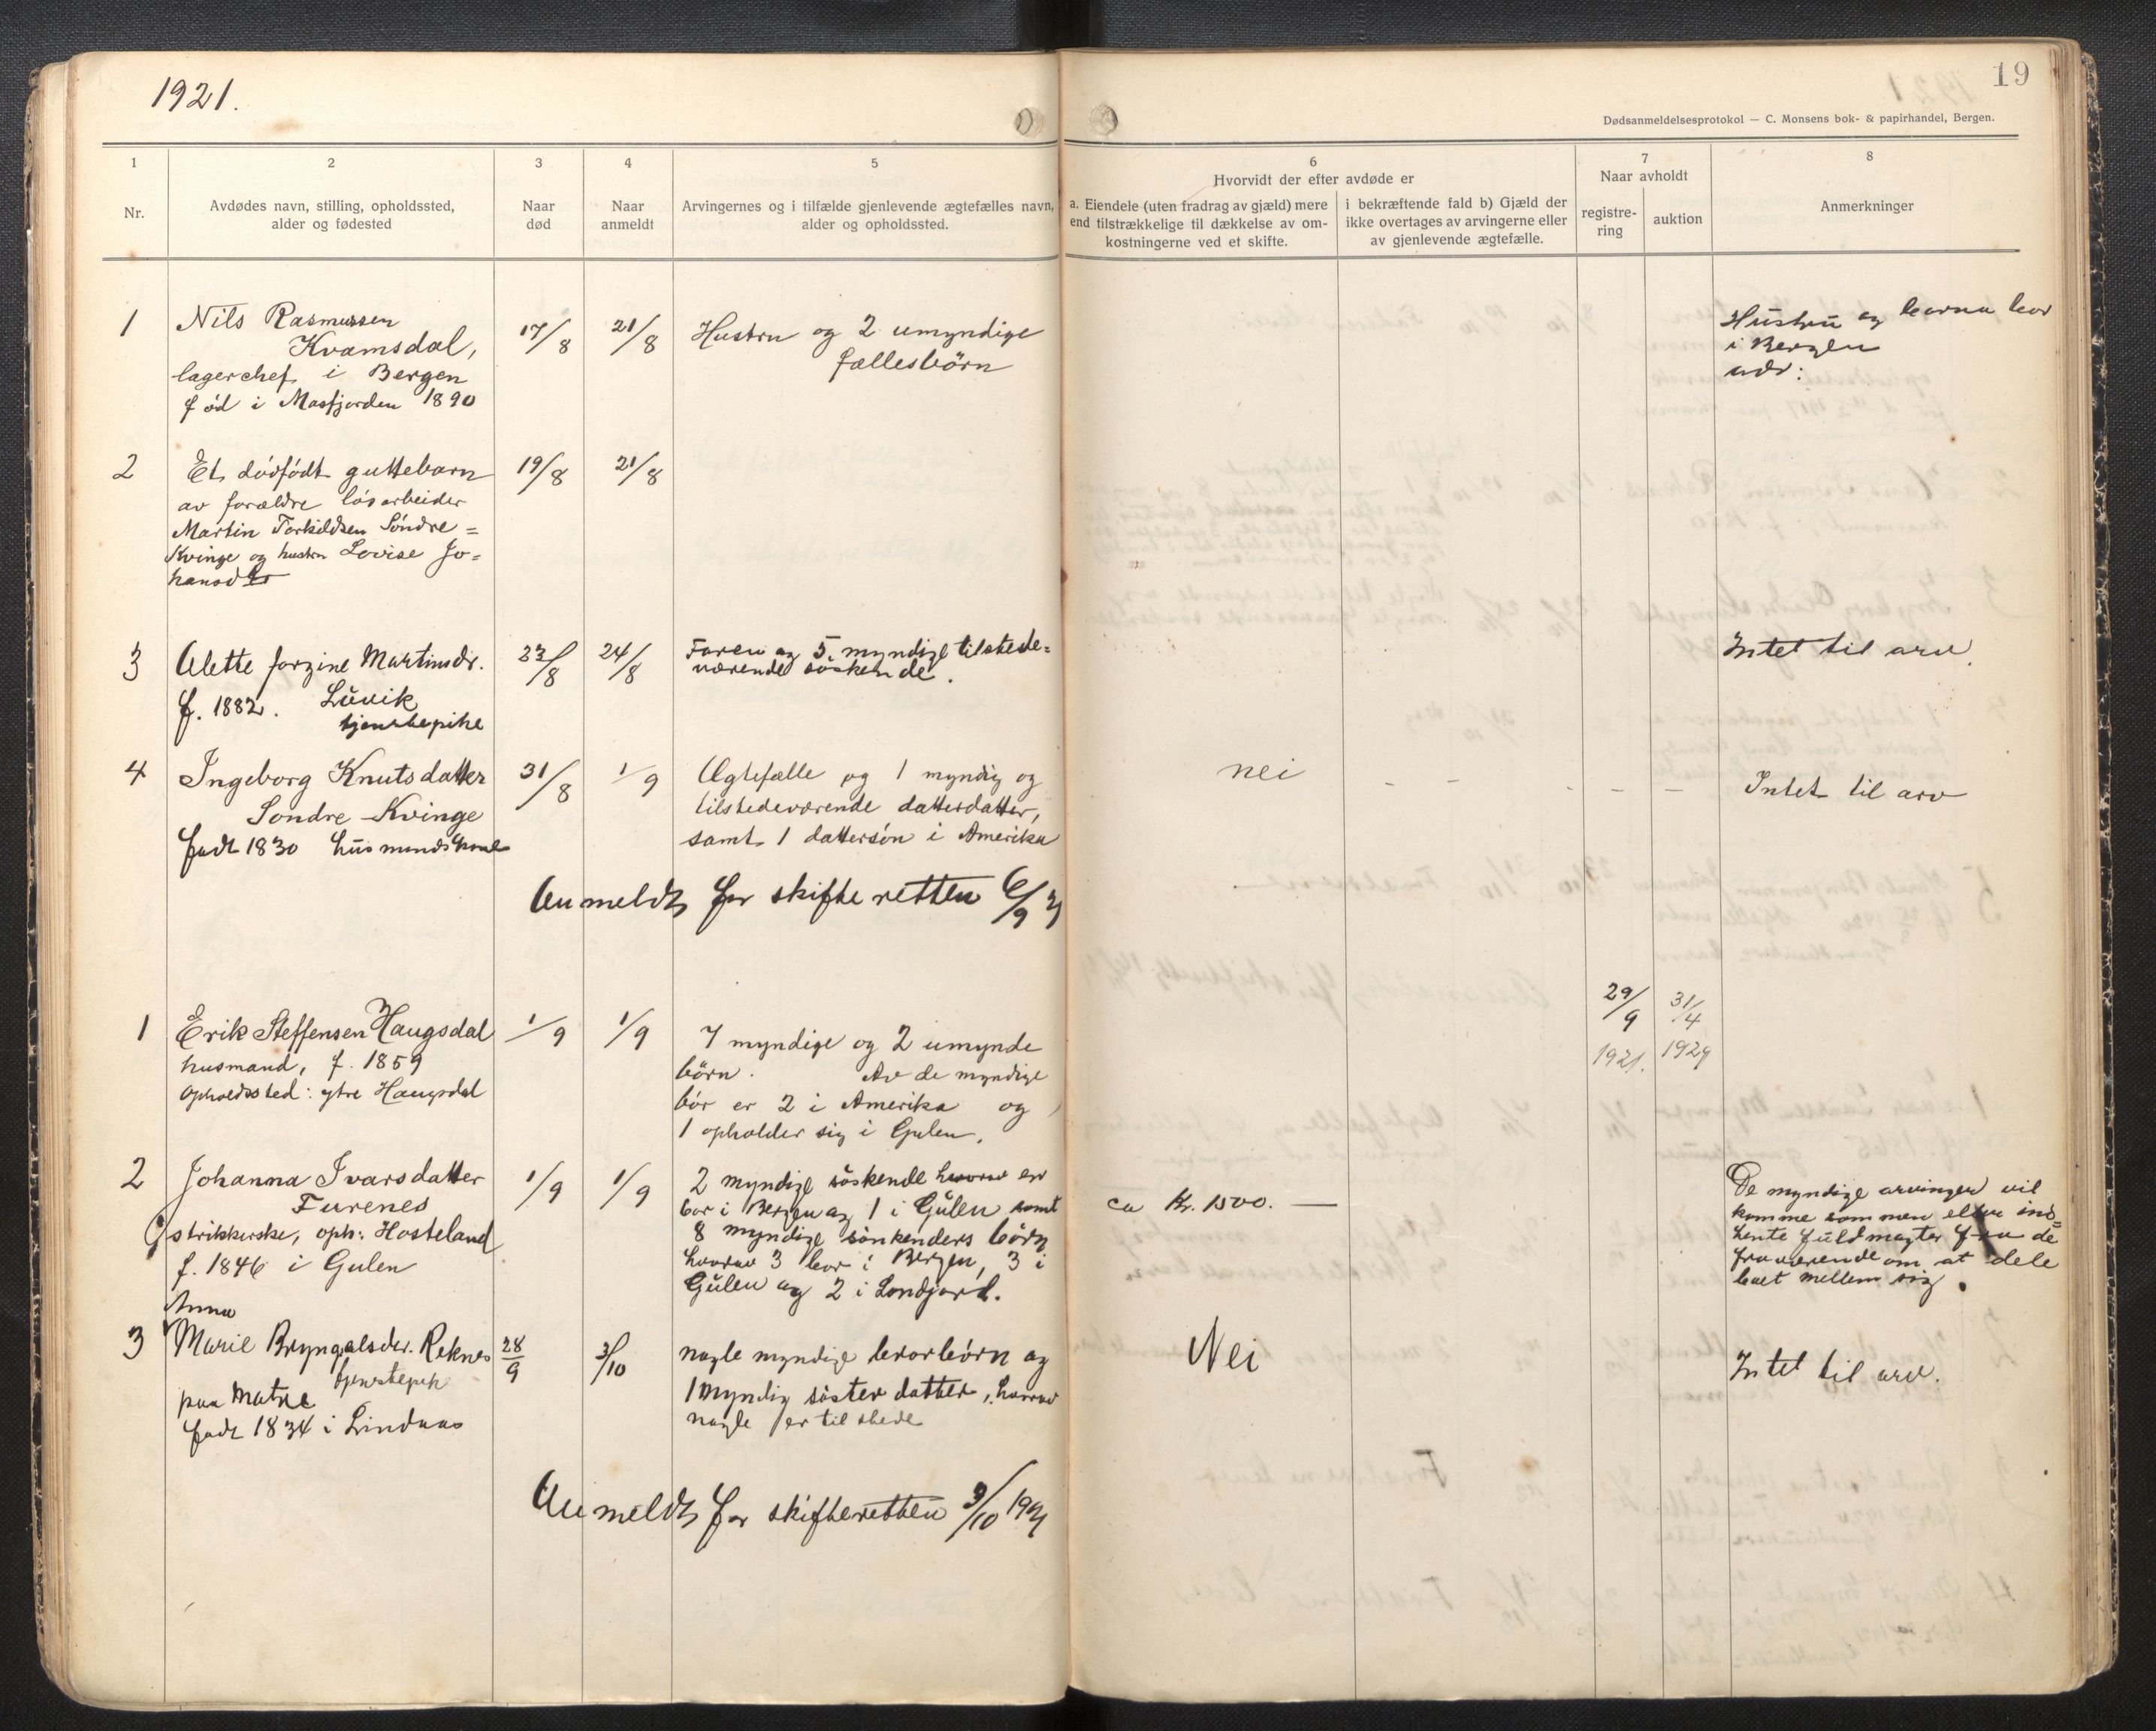 1921.
19
Dødsanmeldelsesprotokol — C. Monsens bok- & papirhandel, Bergen.
1
2
3
4
5
6
7
8
Nr.
Avdødes navn, stilling, opholdssted,
alder og fødested
Naar
død
Naar
anmeldt
Arvingernes og i tilfælde gjenlevende ægtefælles navn,
alder og opholdssted.
Hvorvidt der efter avdøde er
a. Eiendele (uten fradrag av gjæld) mere
end tilstrækkelige til dækkelse av om-
kostningerne ved et skifte.
i bekræftende fald b) Gjæld der
ikke overtages av arvingerne eller
av gjenlevende ægtefælle.
Naar avholdt
registre-
ring
auktion
Anmerkninger
1
Nils Rasmussen
Kvamsdal,
lagerchef i Bergen
fød i Masfjorden 1890
17/8
21/8
Hustru og 2 umyndige
fællesbörn
Hustru og barna bor
i Bergen
adr:
2
Et dödfödt guttebarn
av forældre lösarbeider
Martin Torkildsen Söndre=
Kvinge og hustru Lovise Jo=
hansdtr
19/8
21/8
3
Alette Jorgine Martinsdr.
f. 1882. Lüvik
tjenstepike
23/8
24/8
Faren og 5 myndige tilstede=
værende søskende.
Intet til arv.
4
Ingeborg Knutsdatter
Sondre-Kvinge
født 1830 husmandskone
31/8
1/9
Ægtefælle og 1 myndig og
tilstedeværende datterdatter,
samt 1 dattersön i Amerika
nei
- - - - -
Intet til arv
Anmeldt for skifteretten 6/9 21
1
Erik Steffensen Haugsdal
husmand, f. 1859
opholdssted: ytre Haugsdal
1/9
1/9
7 myndige og 2 umynde
börn. Av de myndige
bör er 2 i Amerika og
1 opholder sig i Gulen.
29/9
1921.
31/4
1929
2
Johanna Ivarsdatter
Furenes
strikkerske, oph: Hosteland
f. 1846 i Gulen
1/9
1/9
2 myndige søskende hvorav en
bor i Bergen og 1 i Gulen samt
8 myndige søskenders börn
hvorav 3 bor i Bergen, 3 i
Gulen og 2 i Sondfjord.
ca Kr. 1500. —
De myndige arvinger vil
komme sammen eller ind=
hente fuldmagter fra de
fraværende om at dele
boet mellem sig.
3
Anna
Marie Bryngelsdr. Reknes
tjenstepik
paa Matre
født 1834 i Lindaas
28/9
3/10
nogle myndige brorbörn og
1 myndig søster datter, hvorav
nogle er til stede
Nei
Intet til arv.
Anmeldt for skifteretten 3/10 1921